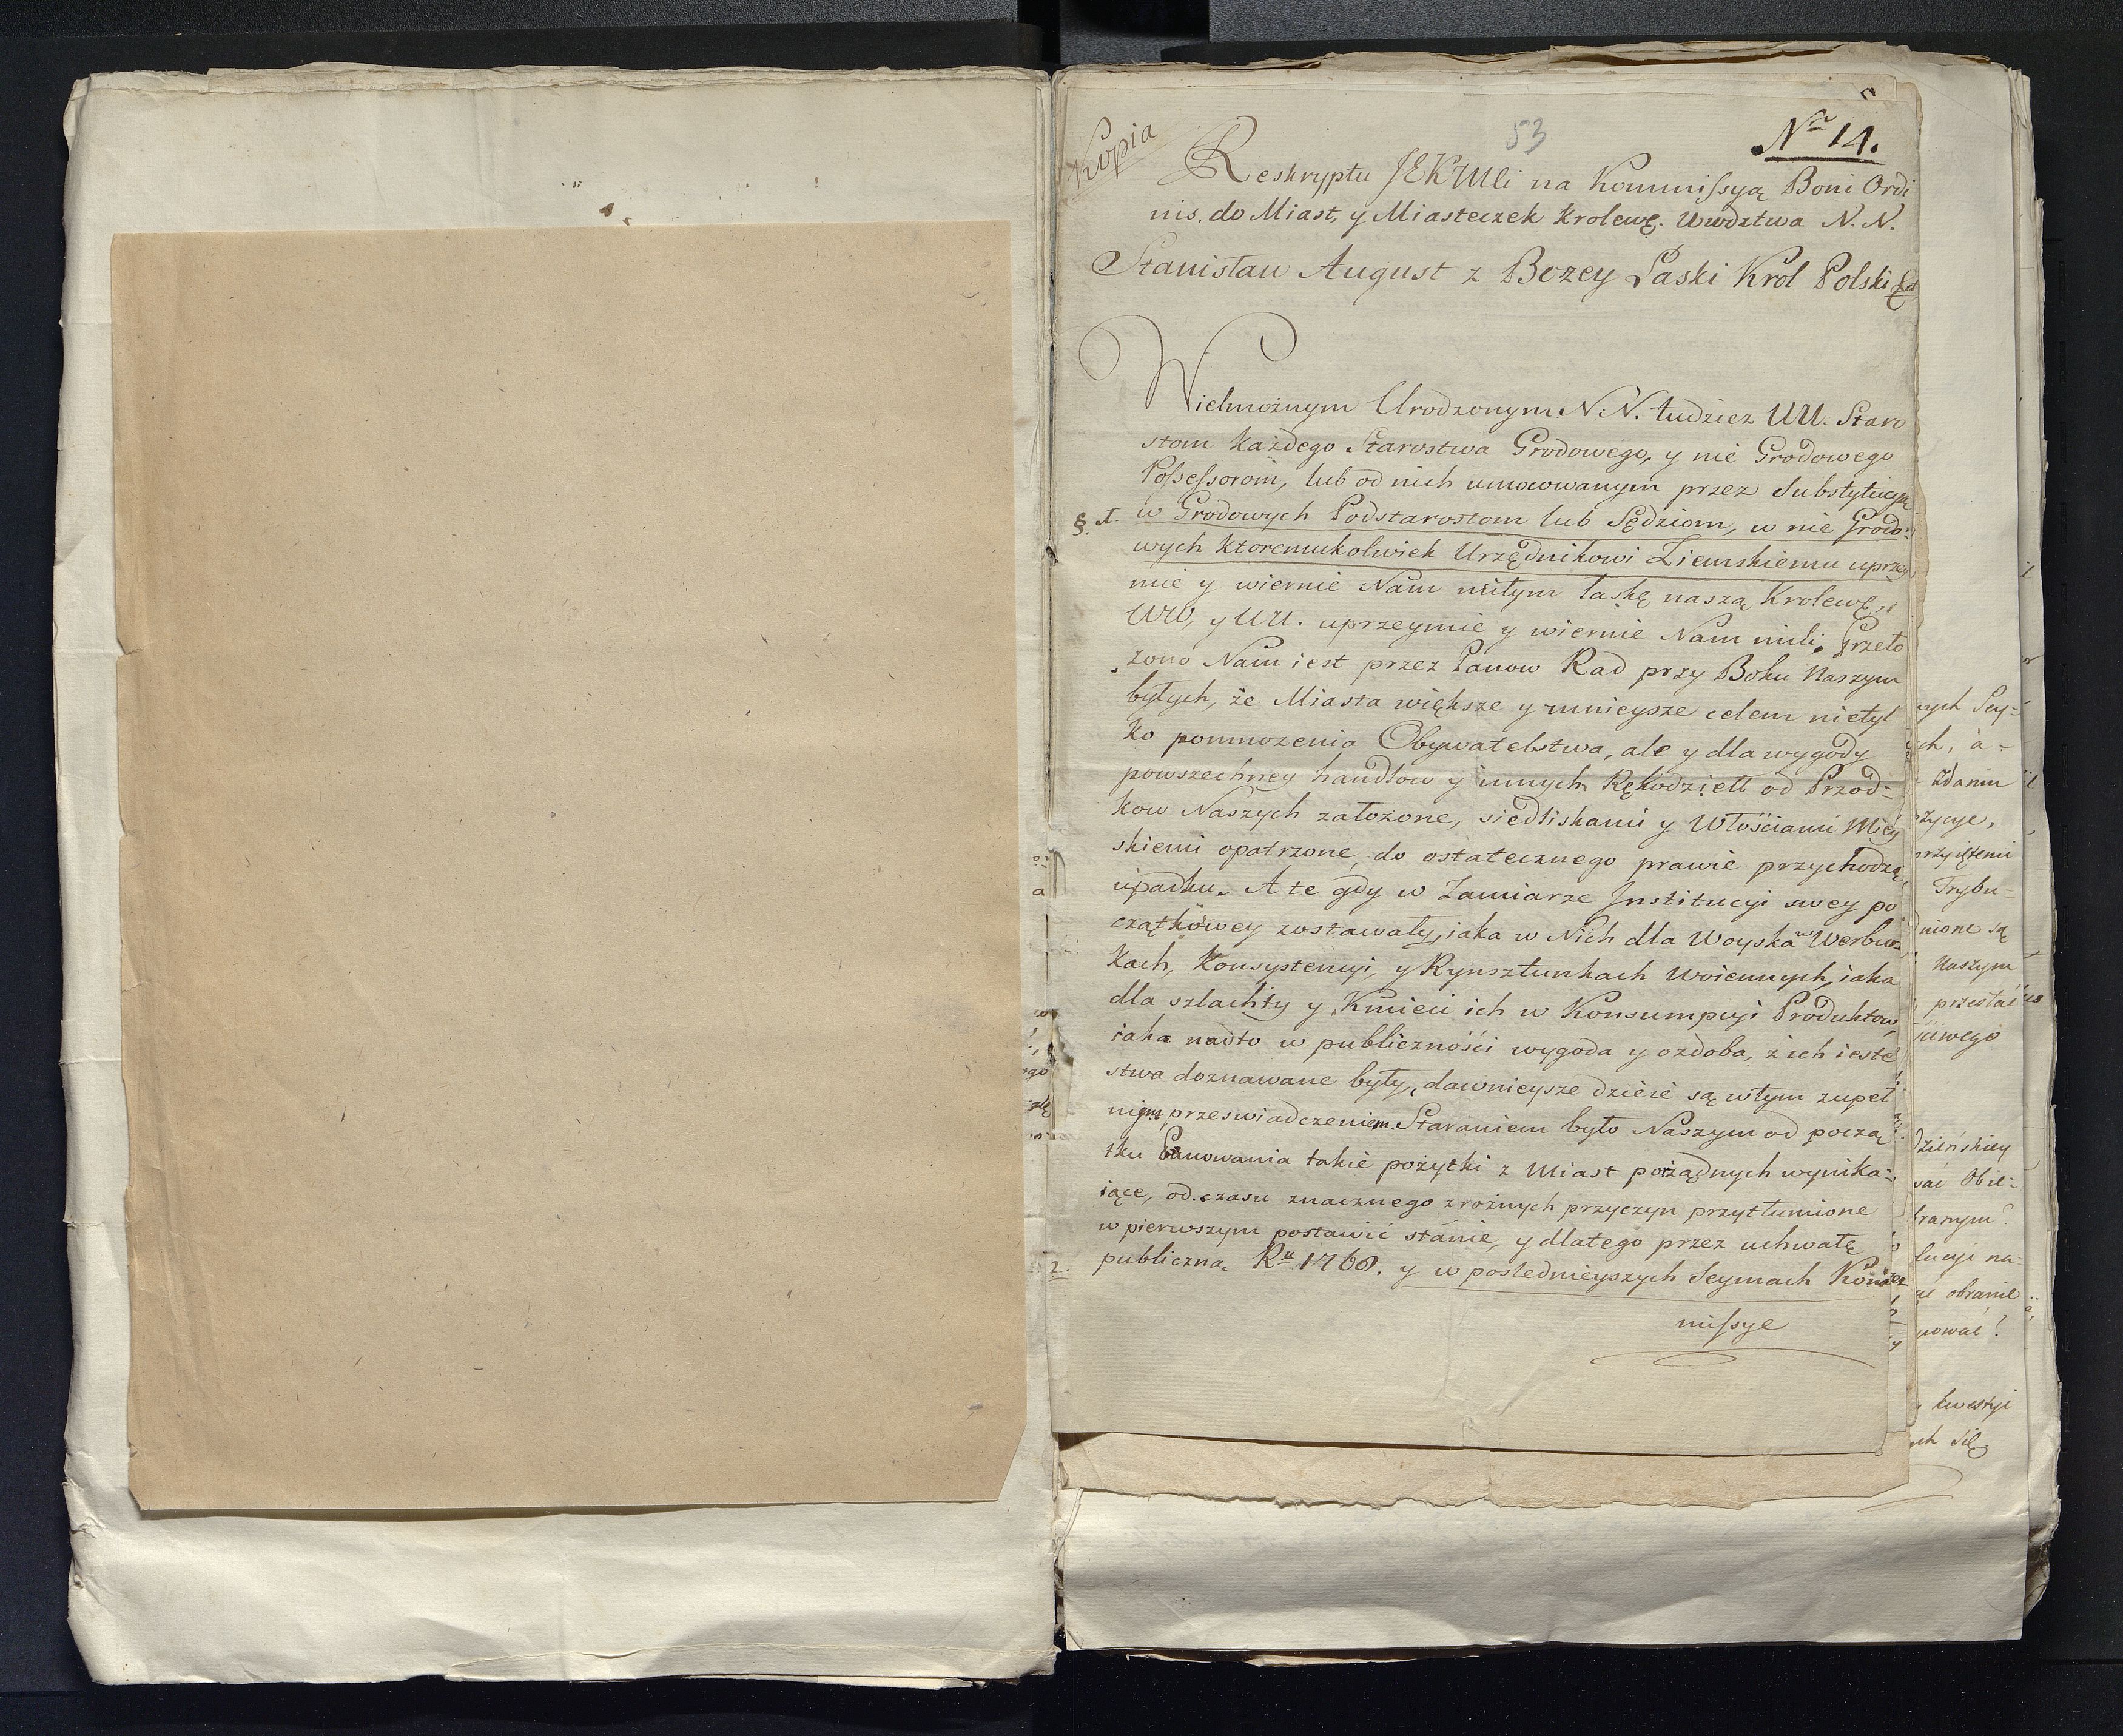 Kopia
53
Nro 14.
Reskryptu JEKMCi na Kommissyą Boni Ordi
nis. do Miast, y Miasteczek Krolewę. Wwdztwa N. N.
Stanisław August z Bozey Łaski Krol Polski &ct
Wielmożnym Urodzonym N. N. tudziez UU. Staro
stom każdego Starostwa Grodowego, y nie Grodowego
Possessorom, lub od nich umocowanym przez Substytucyą
§. 1. w Grodowych Podstarostom lub Sędziom, w nie Grodo=
wych ktoremukolwiek Urzędnikowi Ziemskiemu uprzey
mie y wiernie Nam miłym łaskę naszą Krolewę.
WW, y UU. uprzeymie y wiernie Nam mili. Przeło
zono Nam iest przez Panow Rad przy Boku Naszym
byłych, że Miasta większe y mnieysze celem nietyl
ko pomnozenia Obywatelstwa, ale y dla wygody
powszechney handlow y innych Rękodziełł od Przod=
kow Naszych załozone, siedliskami y Włościami Miey
skiemi opatrzone, do ostatecznego prawie przychodzą
upadku. A te gdy w Zamiarze Jnstitucyi swey po
czątkowey zostawały, iaka w Nich dla Woyska w Werbun
kach, Konsystencyi, y Rynsztunkach Woiennych, iaka
dla szlachty y Kmieci ich w Konsumpcyi Produktow,
iaka nadto w publiczności wygoda y ozdoba, z ich ieste
stwa doznawane były, dawnieysze dzieie są w tym zupeł
nym przeswiadczeniem. Staraniem było Naszym od począ
tku Panowania takie pożytki z Miast porządnych wynika=
iące, od czasu znacznego z rożnych przyczyn przytłumione
w pierwszym postawić stanie, y dlatego przez uchwałę
2. publiczną Ru 1768. y w poslednieyszych Seymach Kom
missye